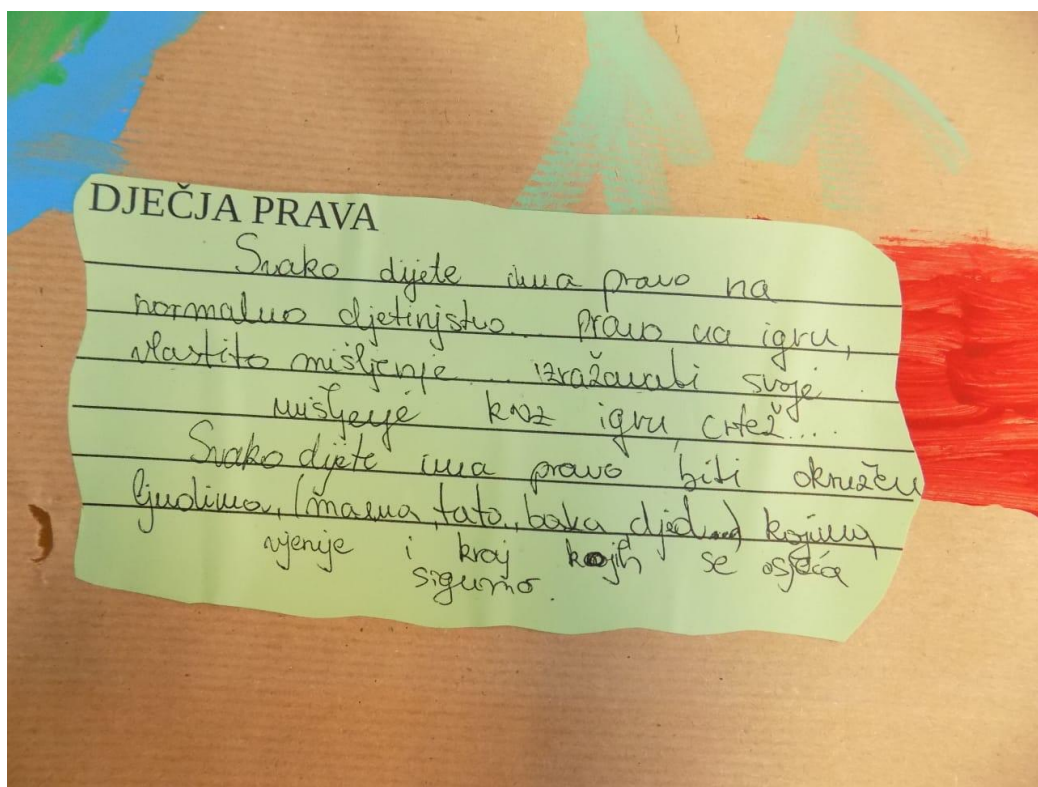 DJEČJA PRAVA
Svako dijete ima pravo na
normalno djetinjstvo... pravo na igru,
vlastito mišljenje... izražavati svoje
mišljenje kroz igru, crtež....
Svako dijete ima pravo biti okružen
ljudima, (mama, tato, baka, djed) kojima
vjeruje i kraj kojih se osjeća
sigurno.